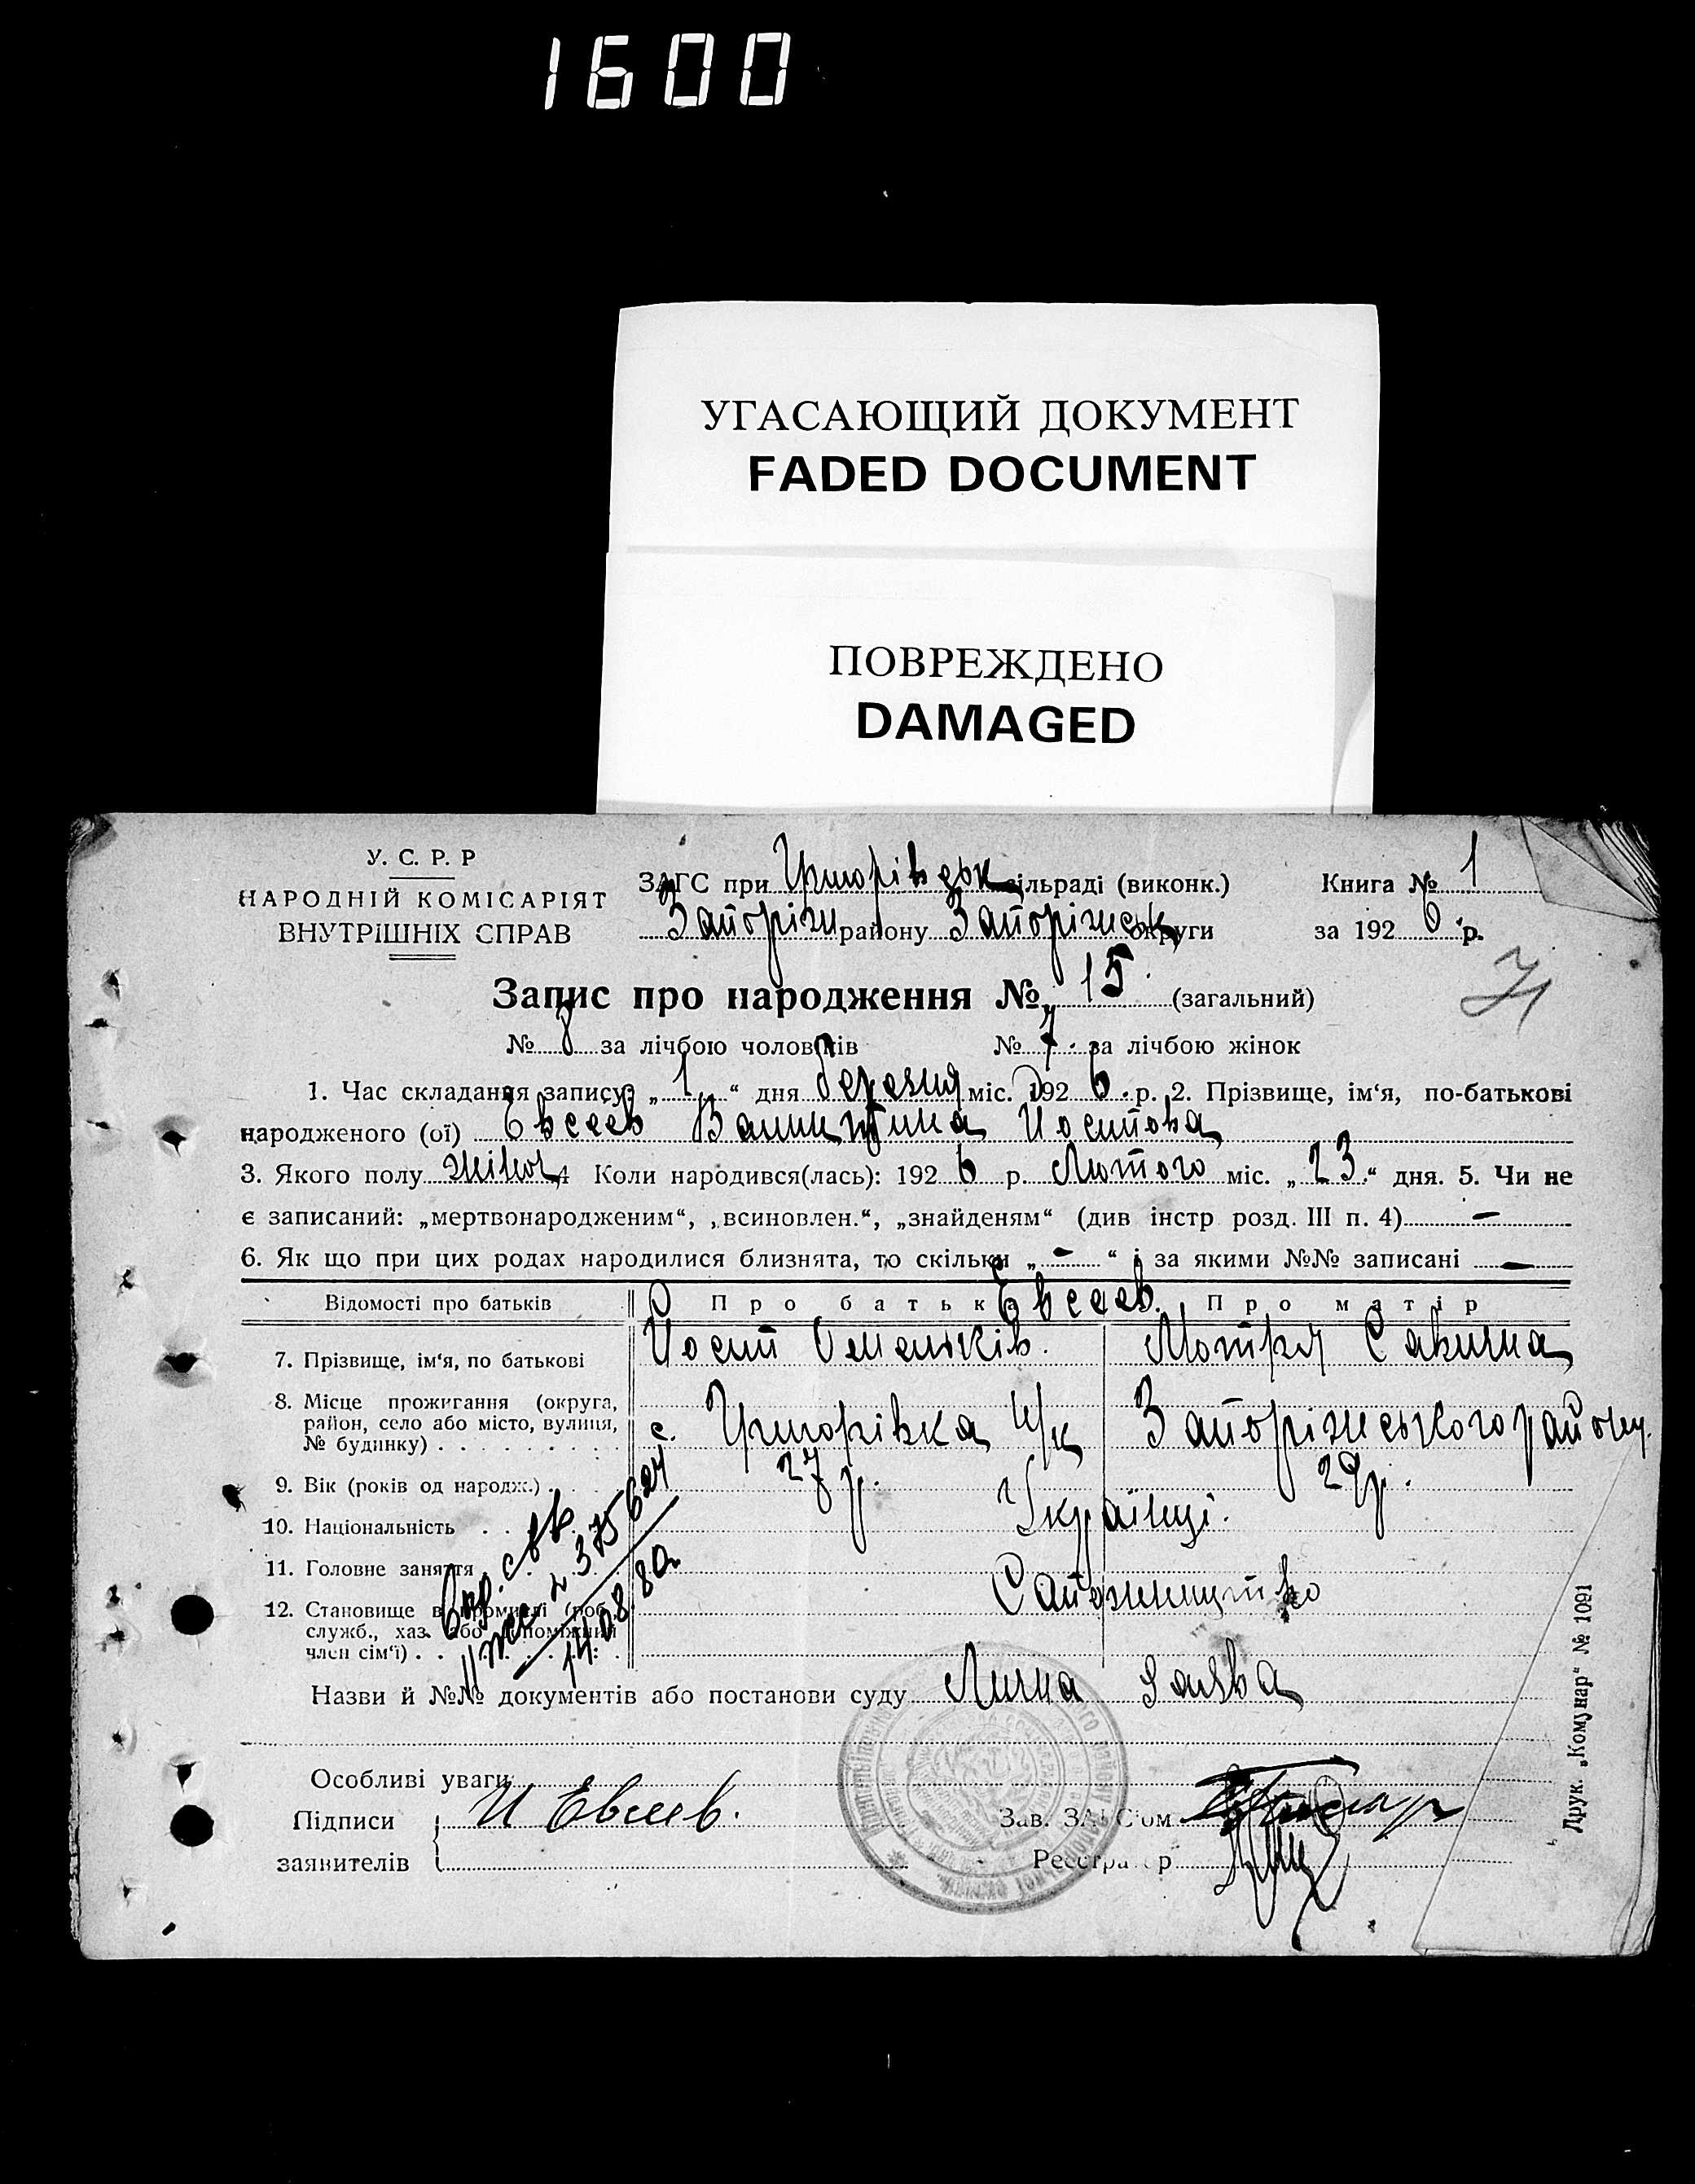 1600
УГАСАЮЩИЙ ДОКУМЕНТ
FADED DOCUMENT
ПОВРЕЖДЕНО
DAMAGED
У. С. Р. Р
НАРОДНІЙ КОМІСАРІЯТ
ВНУТРІШНІХ СПРАВ
ЗАГС при Григорівськ сільраді (виконк.)
Запоріж району Запоріжськ округи
Книга № 1
за 1926 р.
71
Запис про народження № 15 (загальний)
№ 8 за лічбою чоловіків № 7 за лічбою жінок
1. Час складання запису: „1“ дня березня міс. 1926 р. 2. Прізвище, ім‘я, по-батькові
народженого (ої) Евсеев Валинтина Иосипова
3. Якого полу жіноч 4 Коли народився(лась): 1926 р. Лютого міс. „23“ дня. 5. Чи не
є записаний: „мертвонародженим“, „всиновлен.“, „знайденям“ (див інстр розд. III п. 4) —
6. Як що при цих родах народилися близнята, то скільки „—“ і за якими №№ записані —
Відомості про батьків Про батька Про матір
Евсеев.
7. Прізвище, ім‘я, по батькові Иосип Омельків. Мотря Савична
8. Місце прожигання (округа,
район, село або місто, вулиця,
№ будинку) с. Григорівка Запоріжського району
9. Вік (років од народж.) 27 р. 29 р.
10. Національність Українці.
11. Головне заняття
12. Становище в промислі (роб.,
служб., хаз. або допоміжний
член сім‘ї)
14.08.80
Назви й №№ документів або постанови суду Лична заява
Особливі уваги
Підписи И Евсеев.
заявителів
Зав. ЗАГС‘ом
Реєстратор
Друк. „Комунар“ № 1091